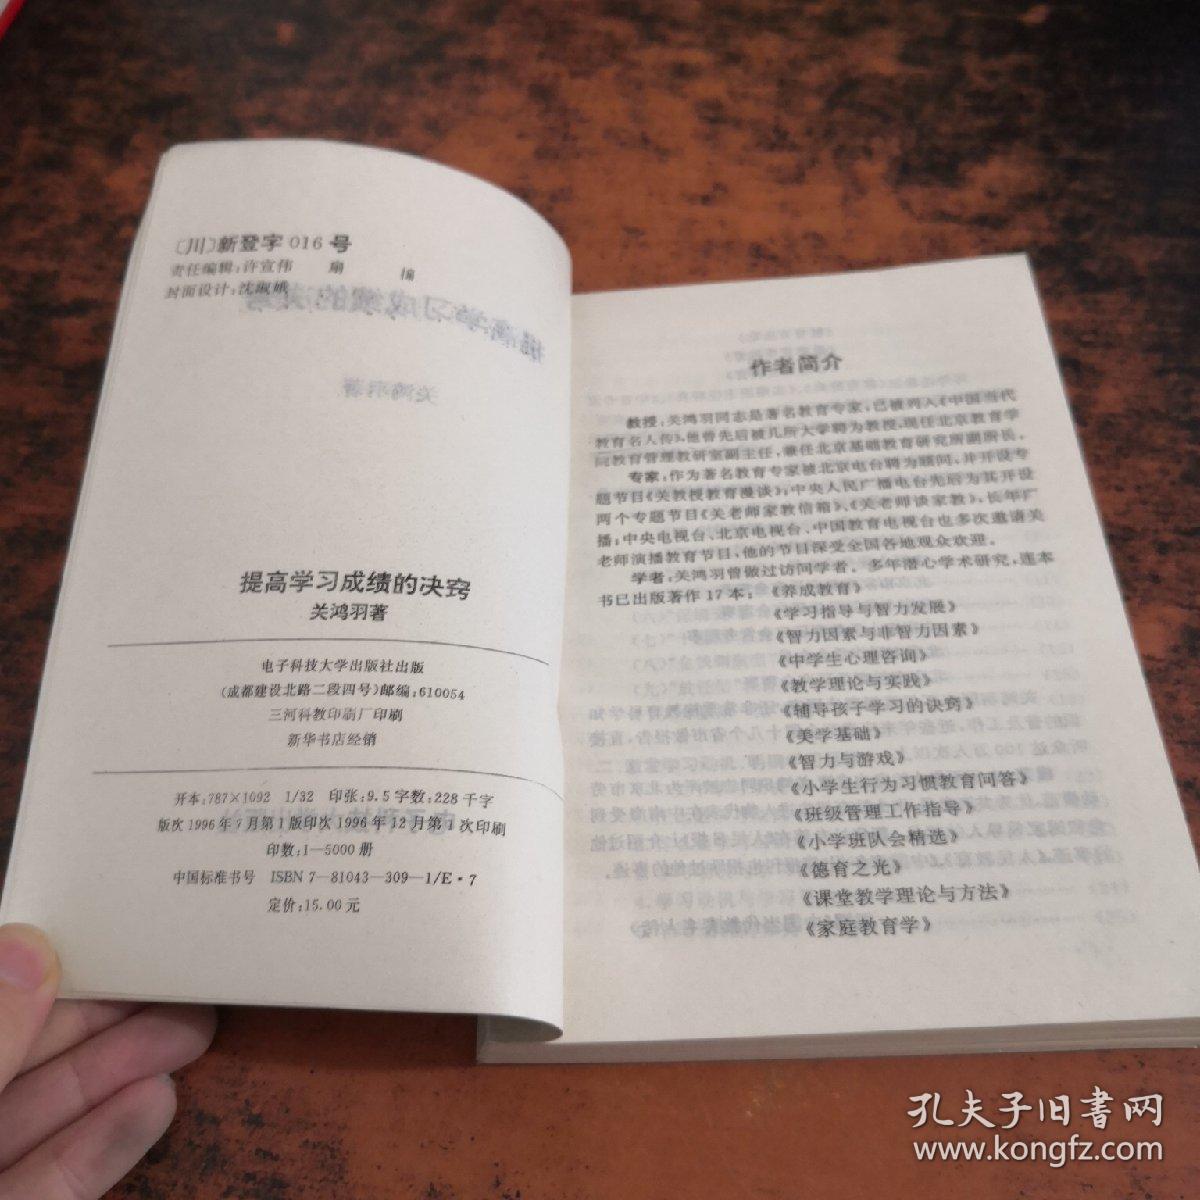 〔川〕新登字016号
责任编辑:许宣伟
封面设计:沈淑娥
提高学习成绩的决窍
关鸿羽著
电子科技大学出版社出版
(成都建设北路二段四号)邮编:610054
三河科教印刷厂印刷
新华书店经销
开本:787×1092 1/32 印张:9.5 字数:228千字
版次1996年7月第1版印次1996年12月第1次印刷
印数:1—5000册
中国标准书号 ISBN 7—81043—309—1/E·7
定价:15.00元
作者简介
教授:关鸿羽同志是著名教育专家,已被列入《中国当代
教育名人传》,他曾先后被几所大学聘为教授,现任北京教育学
院教育管理教研室副主任,兼任北京基础教育研究所副所长,
专家:作为著名教育专家被北京电台聘为顾问,并开设专
题节目《关教授教育漫谈》;中央人民广播电台先后为其开设
两个专题节目《关老师家教信箱》、《关老师谈家教》,长年广
播;中央电视台、北京电视台、中国教育电视台也多次邀请关
老师演播教育节目,他的节目深受全国各地观众欢迎。
学者:关鸿羽曾做过访问学者,多年潜心学术研究,连本
书已出版著作17本:《养成教育》
《学习指导与智力发展》
《智力因素与非智力因素》
《中学生心理咨询》
《教学理论与实践》
《辅导孩子学习的诀窍》
《美学基础》
《智力与游戏》
《小学生行为习惯教育问答》
《班级管理工作指导》
《小学班队会精选》
《德育之光》
《课堂教学理论与方法》
《家庭教育学》
孔夫子旧书网
www.kongfz.com